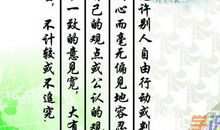 许别人自由行动或判
心而毫无偏见地容忍
己的观点或公认的观
一致的意见宽，大有
，不计较或不追究.
学